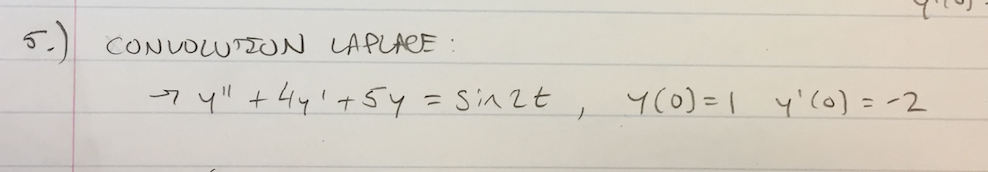 y'(0)
5.) CONVOLUTION LAPLACE :
→ y'' + 4y' + 5y = Sin2t , y(0)=1 y'(0) = -2